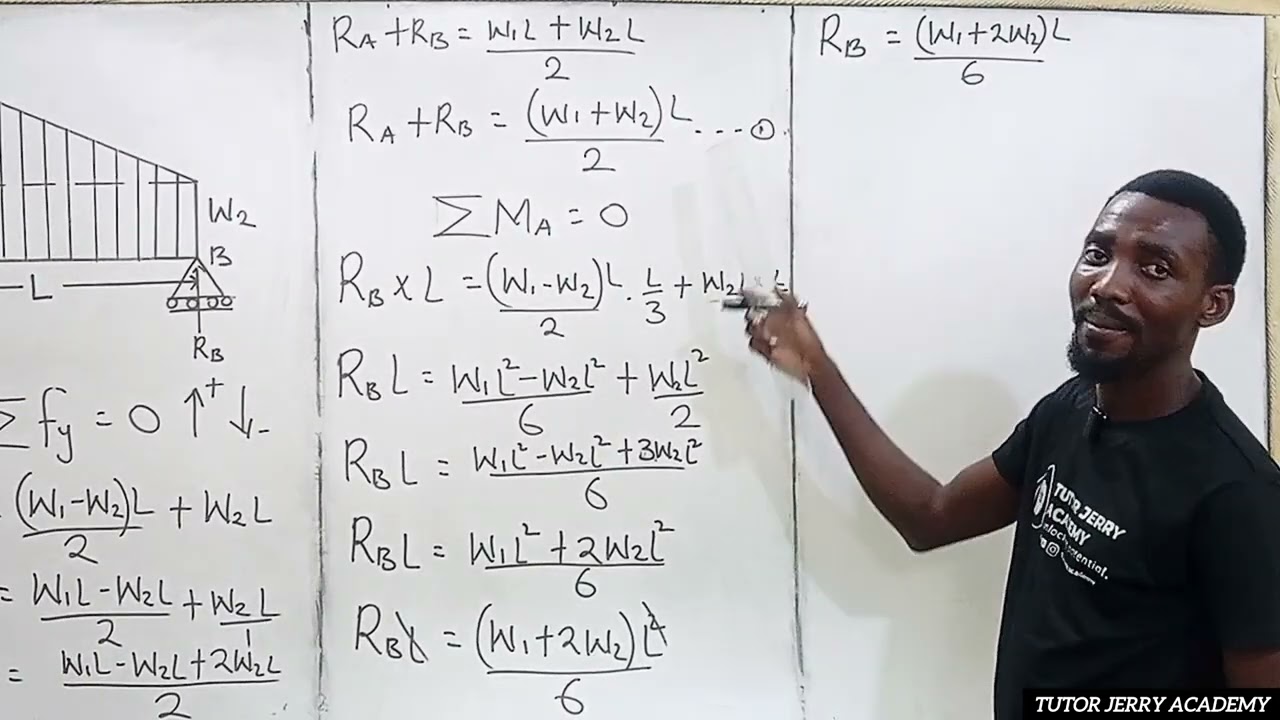 W2
B
L
RB
Σfy = 0 ↑+ ↓-
(W1-W2)L/2 + W2L
= W1L-W2L/2 + W2L/1
= W1L-W2L+2W2L/2
RA+RB = W1L+W2L/2
RA+RB = (W1+W2)L/2 ---①.
ΣMA = 0
RB×L = (W1-W2)L/2 . L/3 + W2L
RBL = W1L²-W2L²/6 + W2L²/2
RBL = W1L²-W2L²+3W2L²/6
RBL = W1L²+2W2L²/6
RBL = (W1+2W2)L²/6
RB = (W1+2W2)L/6
TUTOR JERRY
ACADEMY
TUTOR JERRY ACADEMY